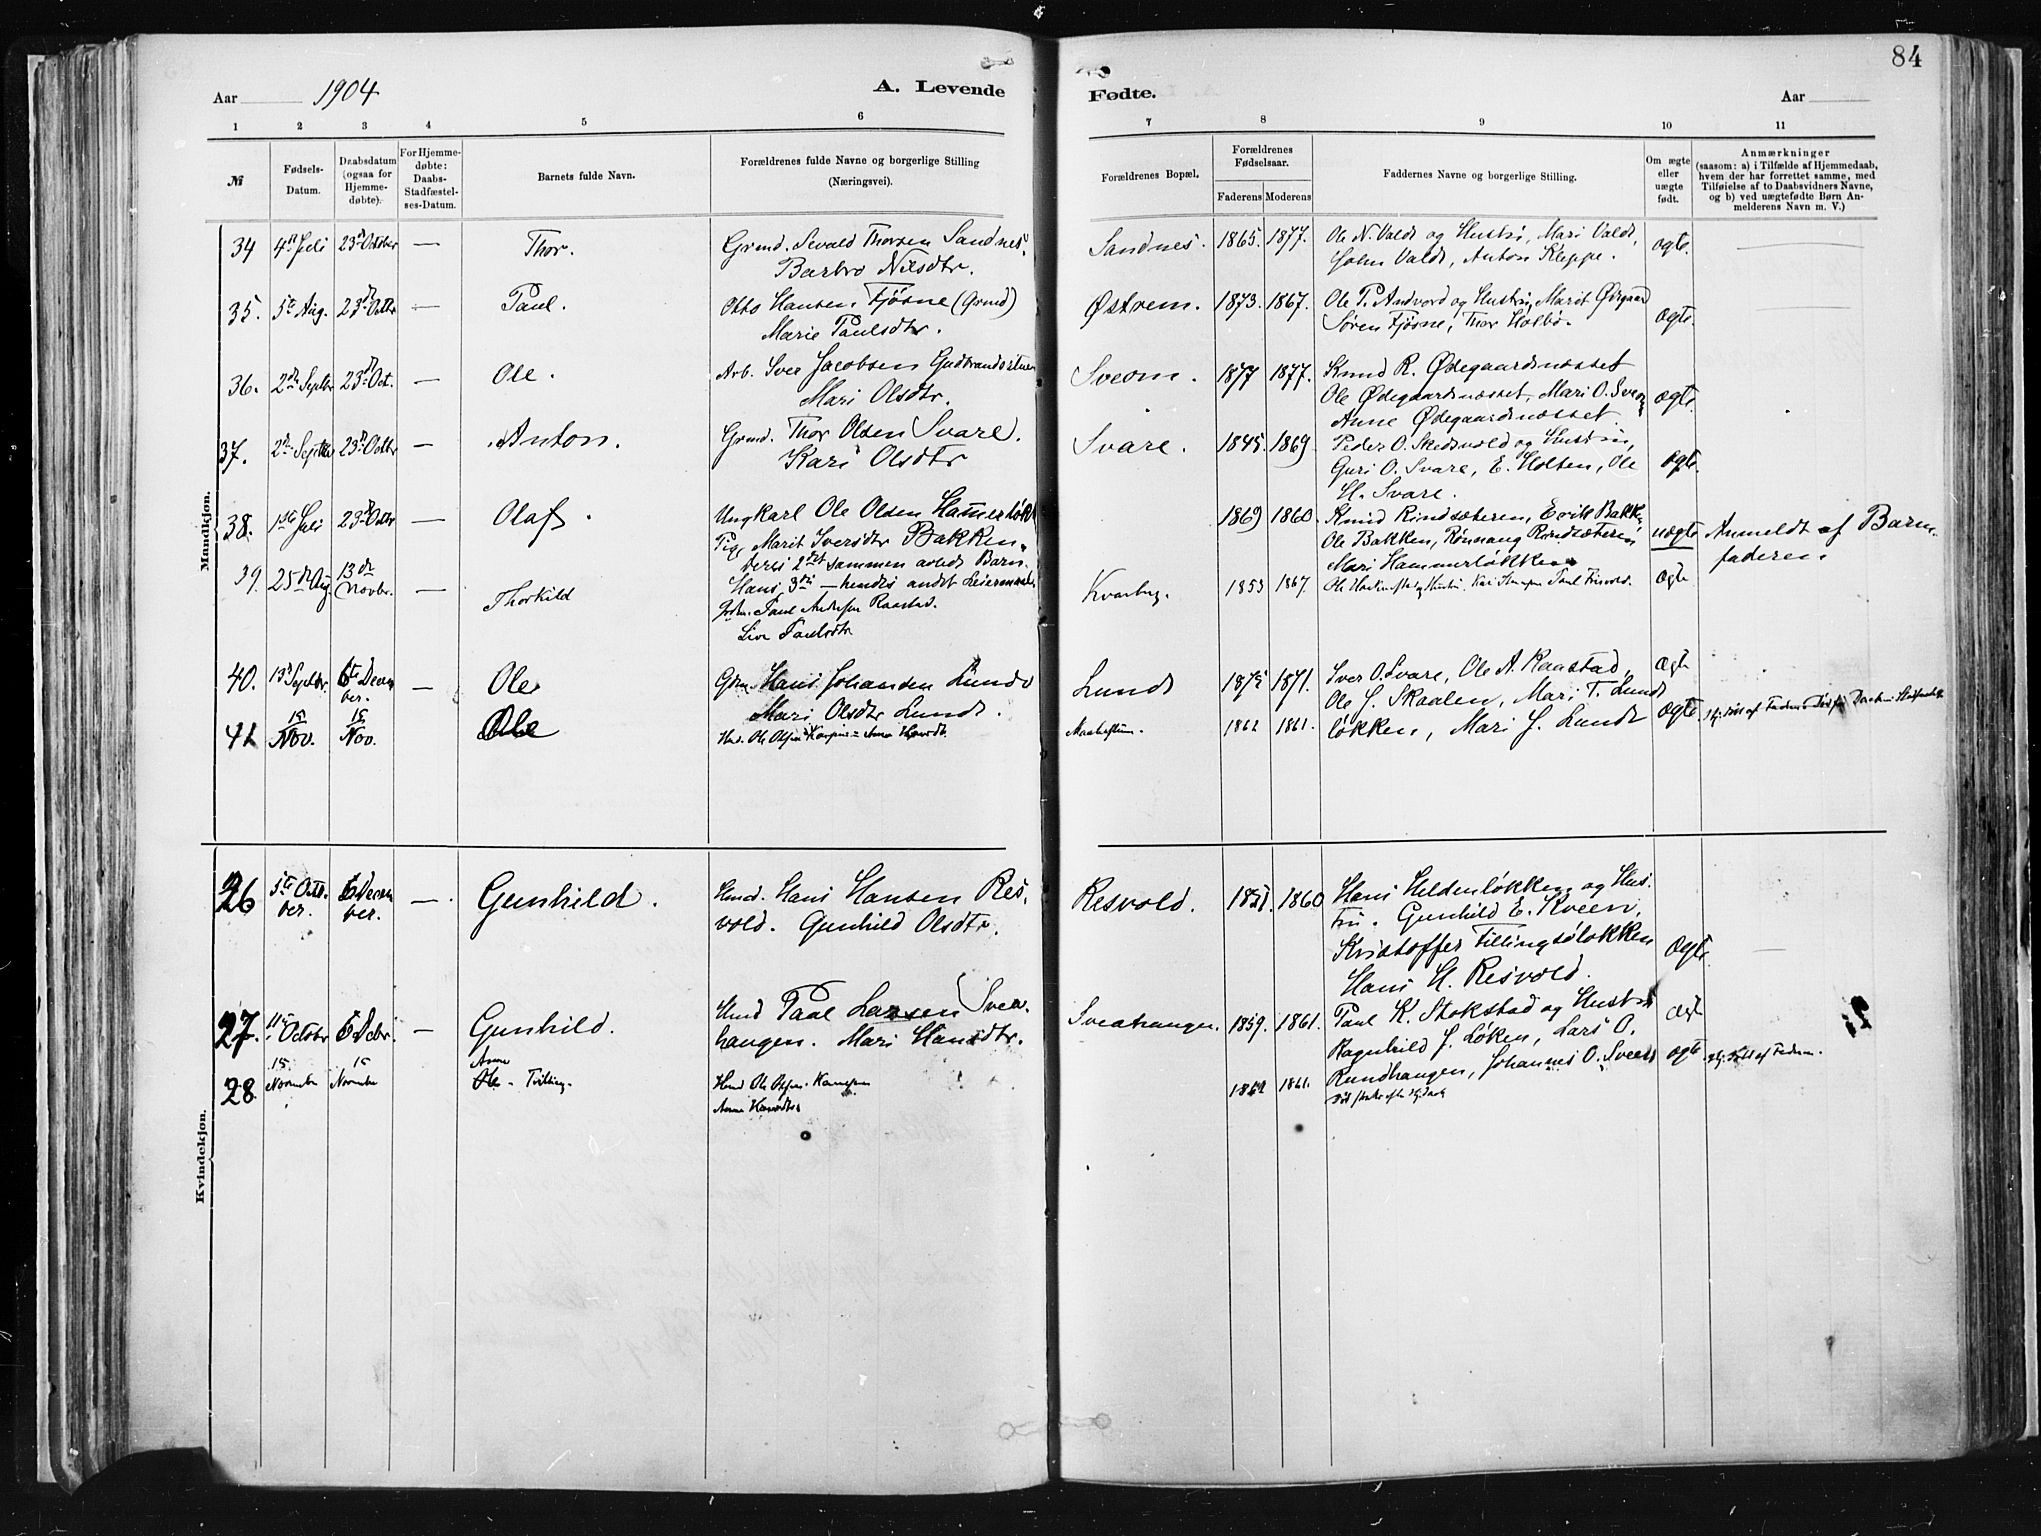 84
Aar 1904
A. Levende
Fødte.
Aar
1 2 3 4 5 6 7 8 9 10 11
№
Fødsels-
Datum.
Daabsdatum
(ogsaa for
Hjemme-
døbte).
For Hjemme-
døbte:
Daabs-
Stadfæstel-
ses-Datum.
Barnets fulde Navn.
Forældrenes fulde Navne og borgerlige Stilling
(Næringsvei).
Forældrenes Bopæl.
Forældrenes
Fødselsaar.
Faderens Moderens
Faddernes Navne og borgerlige Stilling.
Om ægte
eller
uægte
født.
Anmærkninger
(saasom: a) i Tilfælde af Hjemmedaab,
hvem der har forrettet samme, med
Tilføielse af to Daabsvidners Navne,
og b) ved uægtefødte Børn An-
melderens Navn m. V.)
Mandkjøn.
34 4de Juli 23de October — Thor. Grmd. Sivald Thorsen Sandnes,
Barbro Nilsdtr.
Sandnes. 1865. 1877. Ole N. Valde og Hustru, Mari Valde,
John Valde, Anton Kleppe. ægte.
35. 5te Aug. 23de Octbr — Paul. Otto Hansen Fjøsne (Grmd)
Marie Paulsdtr.
Østrem. 1873. 1867. Ole P. Andvord og Hustru, Marit Ødegaard
Søren Fjøsne, Thor Holbø. ægte.
36. 2den Septbr 23de Oct. — Ole. Arb. Iver Jacobsen
Mari Olsdtr.
Sveom. 1877 1877. Knud R. Ødegaardsnæsset
Ole Ødegaardsnæsset, Mari O. Sveom
Anne Ødegaardsnæsset. ægte.
37. 2den Septbr 23de Octbr — Anton. Grmd. Thor Olsen Svare.
Kari Olsdtr
Svare. 1845. 1869. Peder O. Skedsvold og Hustru,
Guri O. Svare, E. Holten, Ole
H. Svare. ægte.
38. 1ste Juli 23de Octbr — Olaf. Ungkarl Ole Olsen Hammerløkk
Pige Marit Iversdtr Bakken.
Deres 2det sammen avlede Barn.
Hans 3die — hendes andet Leiermaal
1869 1860. Knud Rindsæteren, Erik Bakk
Ole Bakken, Rønnaug Rindsæteren
Mari Hammerløkken. uægte Anmeldt af Barne-
faderen
39. 25de Aug. 13de Novbr. — Thorkild Paul Andersen Raastad.
Live Paulsdtr
Kvarberg. 1853 1867. Ole og Hustru, Kari Paul ægte
40. 13de Septbr. 6te Decem
ber. — Ole Grm. Hans Johansen Lunde
Mari Olsdtr Lunde.
Lunde 1875 1871. Iver O. Svare, Ole A. Raastad,
Ole J. Skaalen, Mari T. Lunde
løkken, Mari J. Lunde Ægte
41. 15 Nov. 15 Nov. Ole Hmd. Ole Olsen Kampen - Anne
1862 1861. ægte. Hj.døbt af Faderen
Kvindekjøn.
26 5te Octo-
ber. 6 Decem
ber. — Gunhild. Hmd. Hans Hansen Res-
vold. Gunhild Olsdtr.
Resvold. 1860 Hans Heldenløkken og Hus-
tru. Gunhild E. Kveen,
Kristoffer Tillingsløkken
Hans H. Resvold. Ægte.
27. 11te Octobr 6 Decbr. — Gunhild. Hmd Paal Larsen Svea-
haugen. Mari Hansdtr.
Sveahaugen. 1859. 1861. Paul K. Stokstad og Hustru
Ragnhild J. Løken, Lars O.
Rundhaugen, Johannes O. Sveen Ægte
28. 15 Novembr 15 Novembr Anne
Ole - Tvilling. Hmd Ole Olsen Kampen
Anne
1862 1861. Død ægte. Hj. døbt af Faderen.